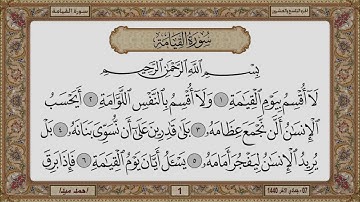 سورة القيامة
الجزء التاسع والعشرون
سُورَةُ القِيَامَةِ
بِسْمِ اللَّهِ الرَّحْمَٰنِ الرَّحِيمِ
لَآ أُقْسِمُ بِيَوْمِ ٱلْقِيَٰمَةِ ١ وَلَآ أُقْسِمُ بِٱلنَّفْسِ ٱللَّوَّامَةِ ٢ أَيَحْسَبُ
ٱلْإِنسَٰنُ أَلَّن نَّجْمَعَ عِظَامَهُۥ ٣ بَلَىٰ قَٰدِرِينَ عَلَىٰٓ أَن نُّسَوِّىَ بَنَانَهُۥ ٤ بَلْ
يُرِيدُ ٱلْإِنسَٰنُ لِيَفْجُرَ أَمَامَهُۥ ٥ يَسْـَٔلُ أَيَّانَ يَوْمُ ٱلْقِيَٰمَةِ ٦ فَإِذَا بَرِقَ
أحمد
1
07
1440